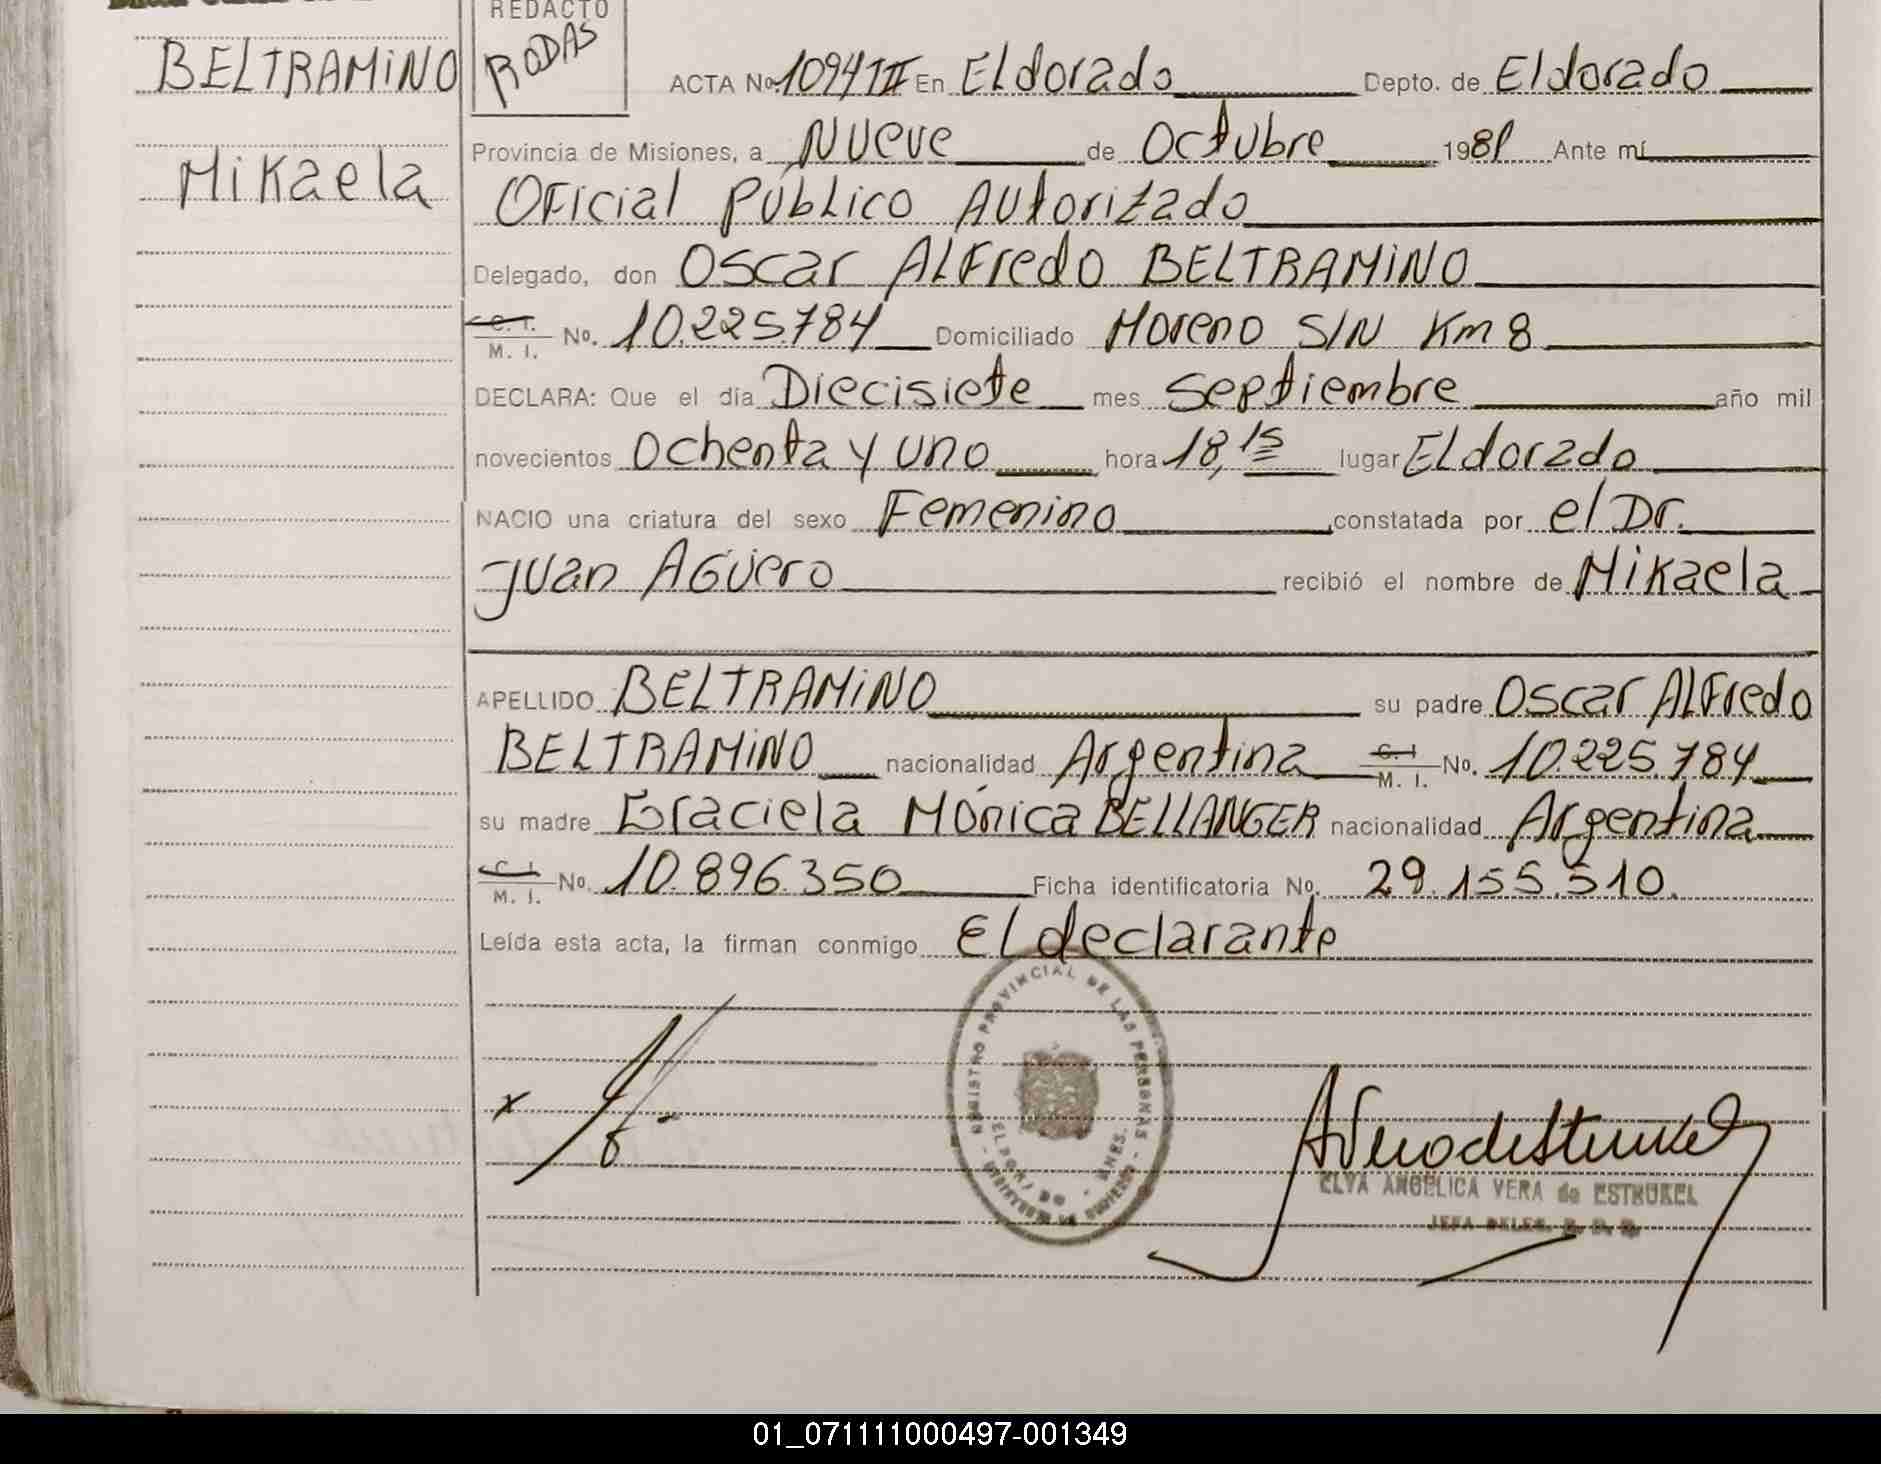 REDACTO
RODAS
BELTRAMINO
Mikaela
ACTA No. 1094 TII En Eldorado Depto. de Eldorado
Provincia de Misiones, a Nueve de Octubre 1981 Ante mí
Oficial Público Autorizado
Delegado, don Oscar Alfredo BELTRAMINO
C. I. M. I. No. 10.225.784 Domiciliado Moreno S/N Km 8
DECLARA: Que el día Diecisiete mes Septiembre año mil
novecientos Ochenta y uno hora 18,15 lugar Eldorado
NACIO una criatura del sexo Femenino constatada por el Dr.
Juan Agüero recibió el nombre de Mikaela
APELLIDO BELTRAMINO su padre Oscar Alfredo
BELTRAMINO nacionalidad Argentina C. I. M. I. No. 10.225.784
su madre Graciela Mónica BELLANGER nacionalidad Argentina
C. I. M. I. No. 10.896.350 Ficha identificatoria No. 29.155.510.
Leída esta acta, la firman conmigo El declarante
REGISTRO PROVINCIAL DE LAS PERSONAS
ELVA ANGELICA VERA de ESTRUKEL
01_071111000497-001349